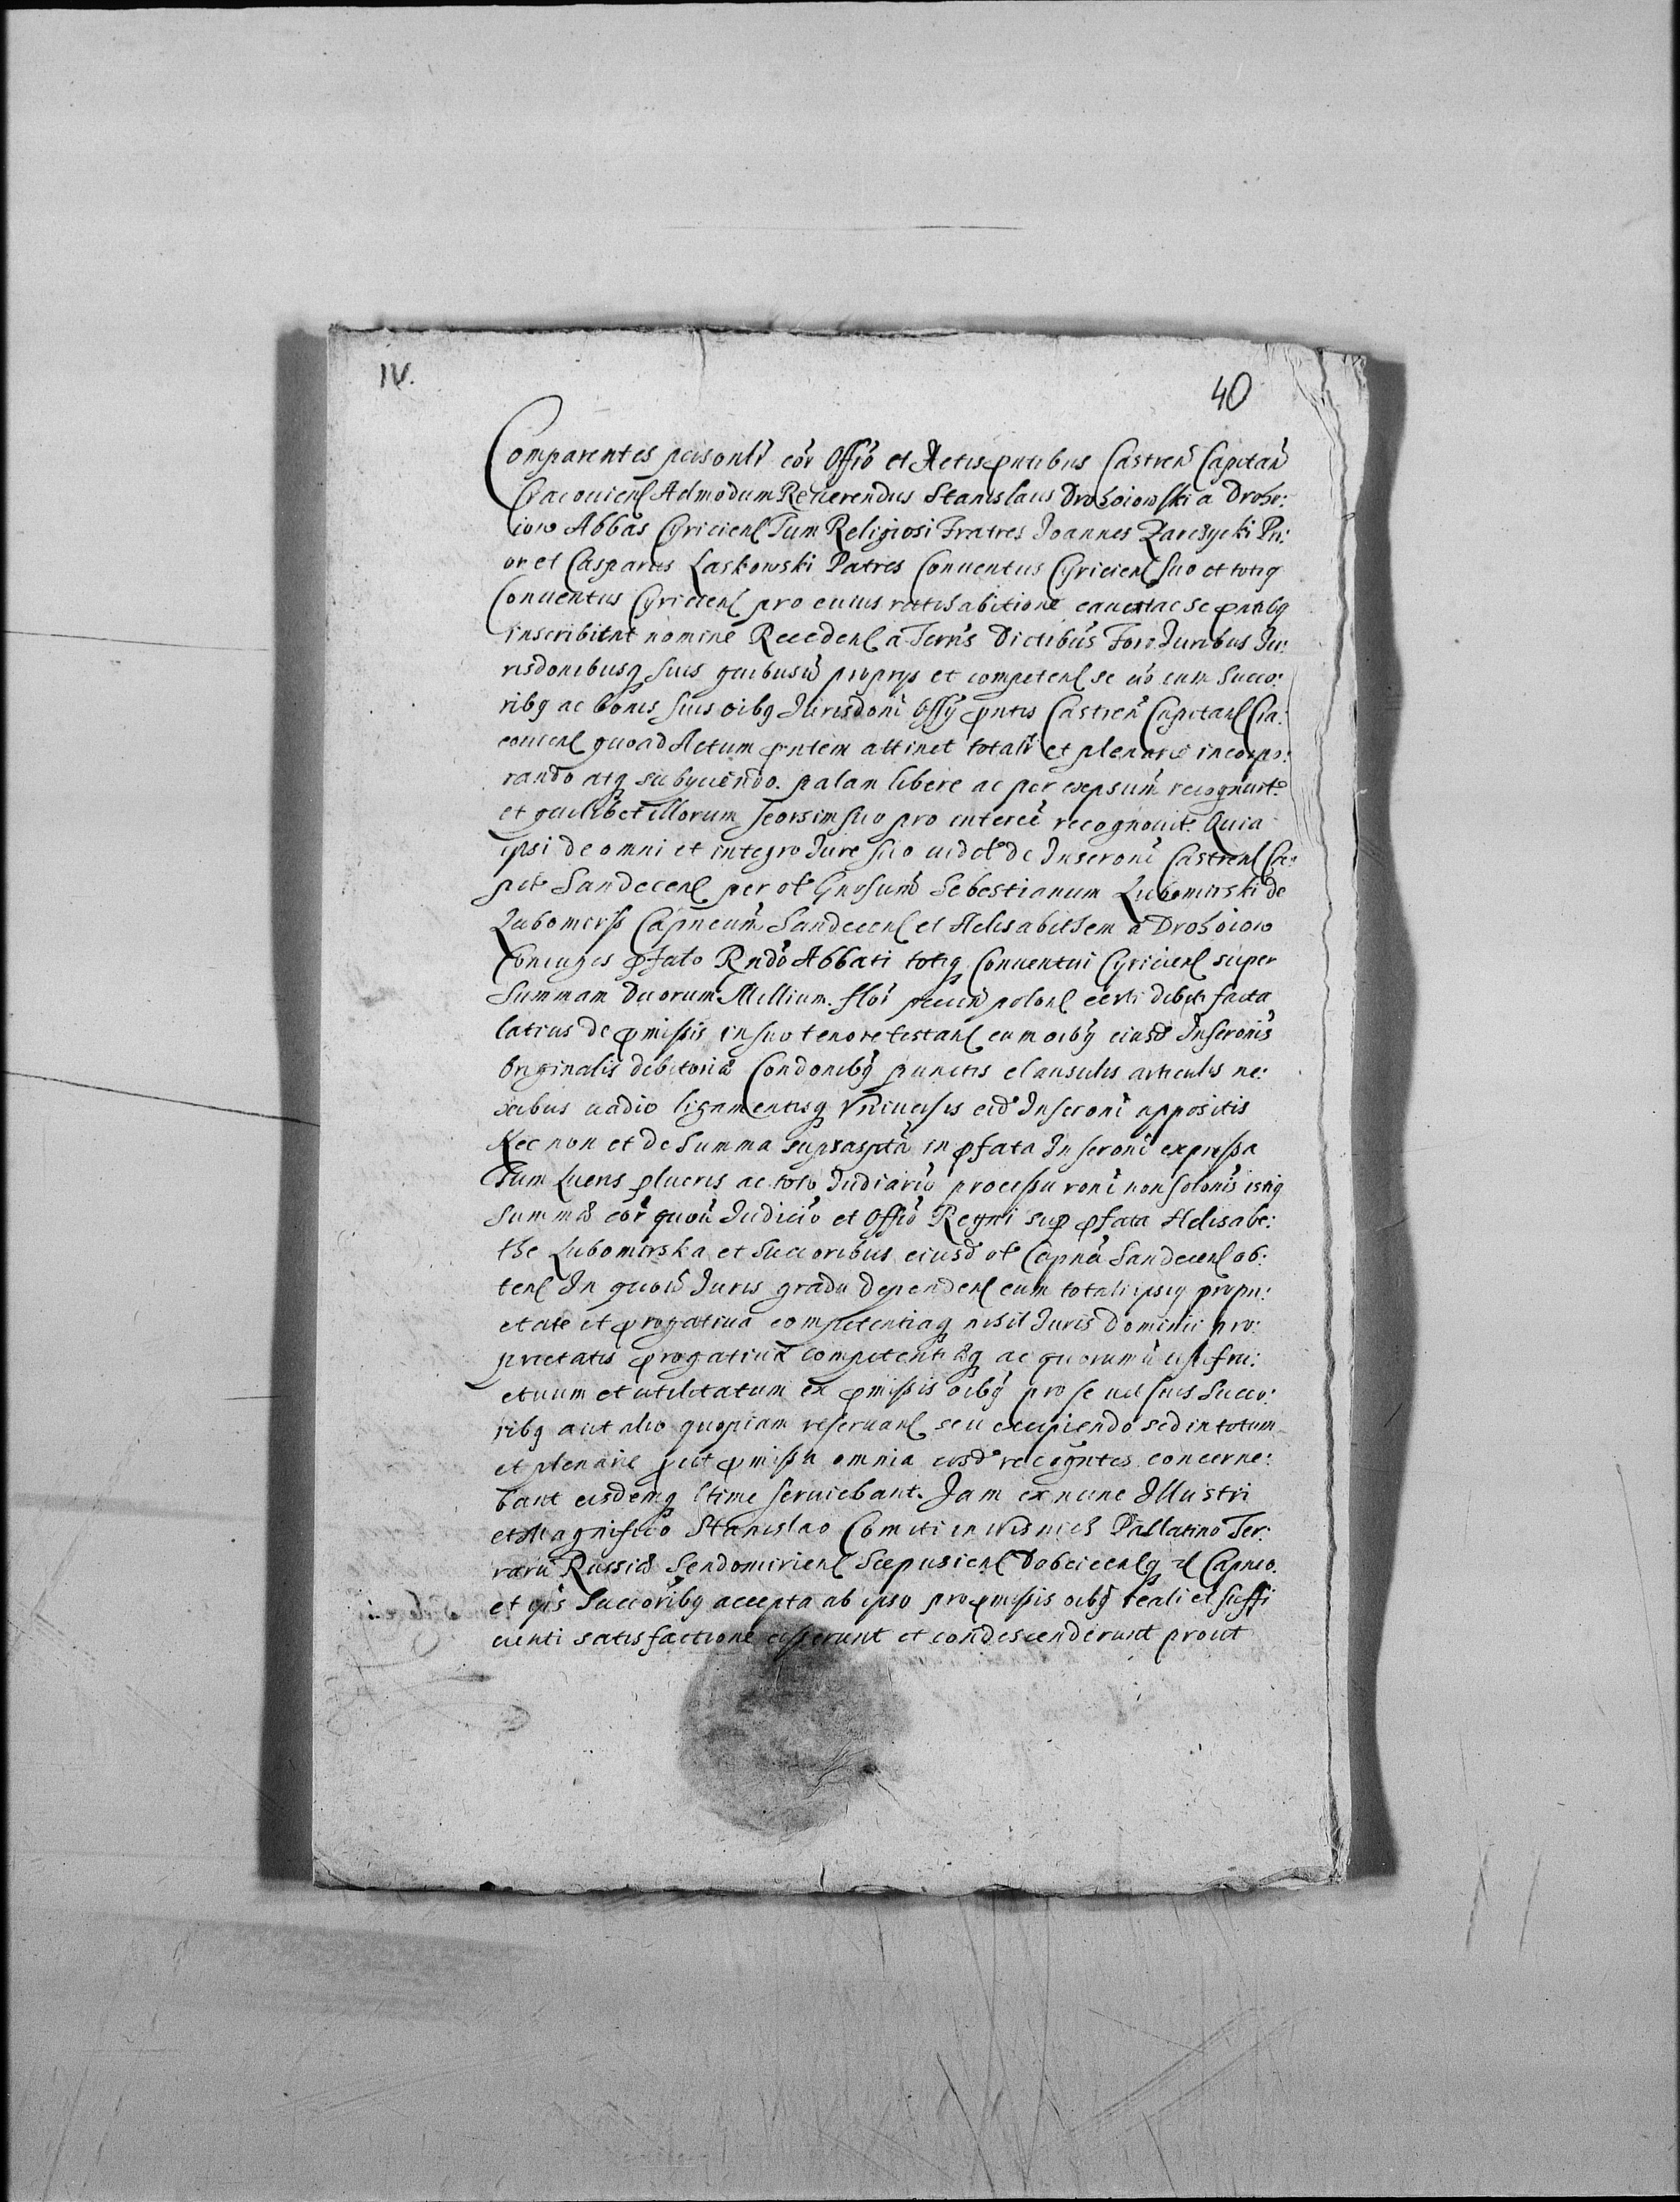 IV.
40
Comparentes psonlr cor Offio et Actis pntibus Castren Capitan
Cracouien Admodum Reuerendus Stanislaus Drohoiowski a Droho:
iow Abbas Cyricien Tum Religiosi Fratres Joannes Zarczycki Pri:
or et Casparus Laskowski Patres Conuentus Cyricien suo et totiq
Conuentus Cyricien pro cuius ratihabitione cauent ac se pntibq
inscribunt nomine Receden a Terris Dictibus Foro Juribus Ju:
risdonibusq suis quibusuis proprys et competen se uo cum Succo:
ribq ac bonis suis oibq Jurisdoni Offy pntis Castren Capitan Cra:
couien quoad Actum pntem attinet totalr et plenarie incorpo:
rando atq subyciendo. palam libere ac per expsum recognurt
et quilibet illorum seorsim suo pro interee recognouit. Quia
ipsi de omni et integro Jure suo uidel de Inscroni Castren Ca:
pit Sandecen per ol Gnosum Sebestianum Lubomirski de
Lubomirß Capneum Sandecen et Helisabethem a Drohoiow
Coniuges pfato Rndo Abbati totiq Conuentui Cyricien super
Summam Duorum Millium flor pecun polon certi debiti facta
latius de pmissis in suo tenore testan cum oibq eiusd Inscronis
Originalis debitoria Condonibq punctis clausulis articulis ne:
xibus uadio ligamentisq Vniuersis eid Inscroni appositis
Nec non et de Summa suprasptа in pfata Inscroni expressa
Tum Lucris plucris ac toto Judiario processu roni non solonis istiq
Summa cor quou Judicio et Offio Regni sup pfata Helisabe:
the Lubomirska et Succoribus eiusd ol Capnei Sandecen ob:
ten In quouis Juris gradu dependen cum totali ipsiq propri:
etate et prrogatiua competentiaq nihil Juris Dominii pro:
prietatis prrogatiua competentiaq ac quorumuis usufru:
ctuum et utilitatum ex pmissis oibq pro se uel suis Succo:
ribq aut alio quopiam reseruan seu excipiendo sed in totum
et plenarie put pmissa omnia eosd recogntes concerne:
bant eisdemq ltime seruiebant. Jam ex nunc Illustri
et Magnifico Stanislao Comiti in Wisnicz Pallatino Ter:
raru Russia Sendomirien Scepusien Dobcicenq zl Capneo
et ipis Succoribq accepta ab ipso pro pmissis oibq reali et suffi
cienti satisfactione cesserunt et condescenderunt prout